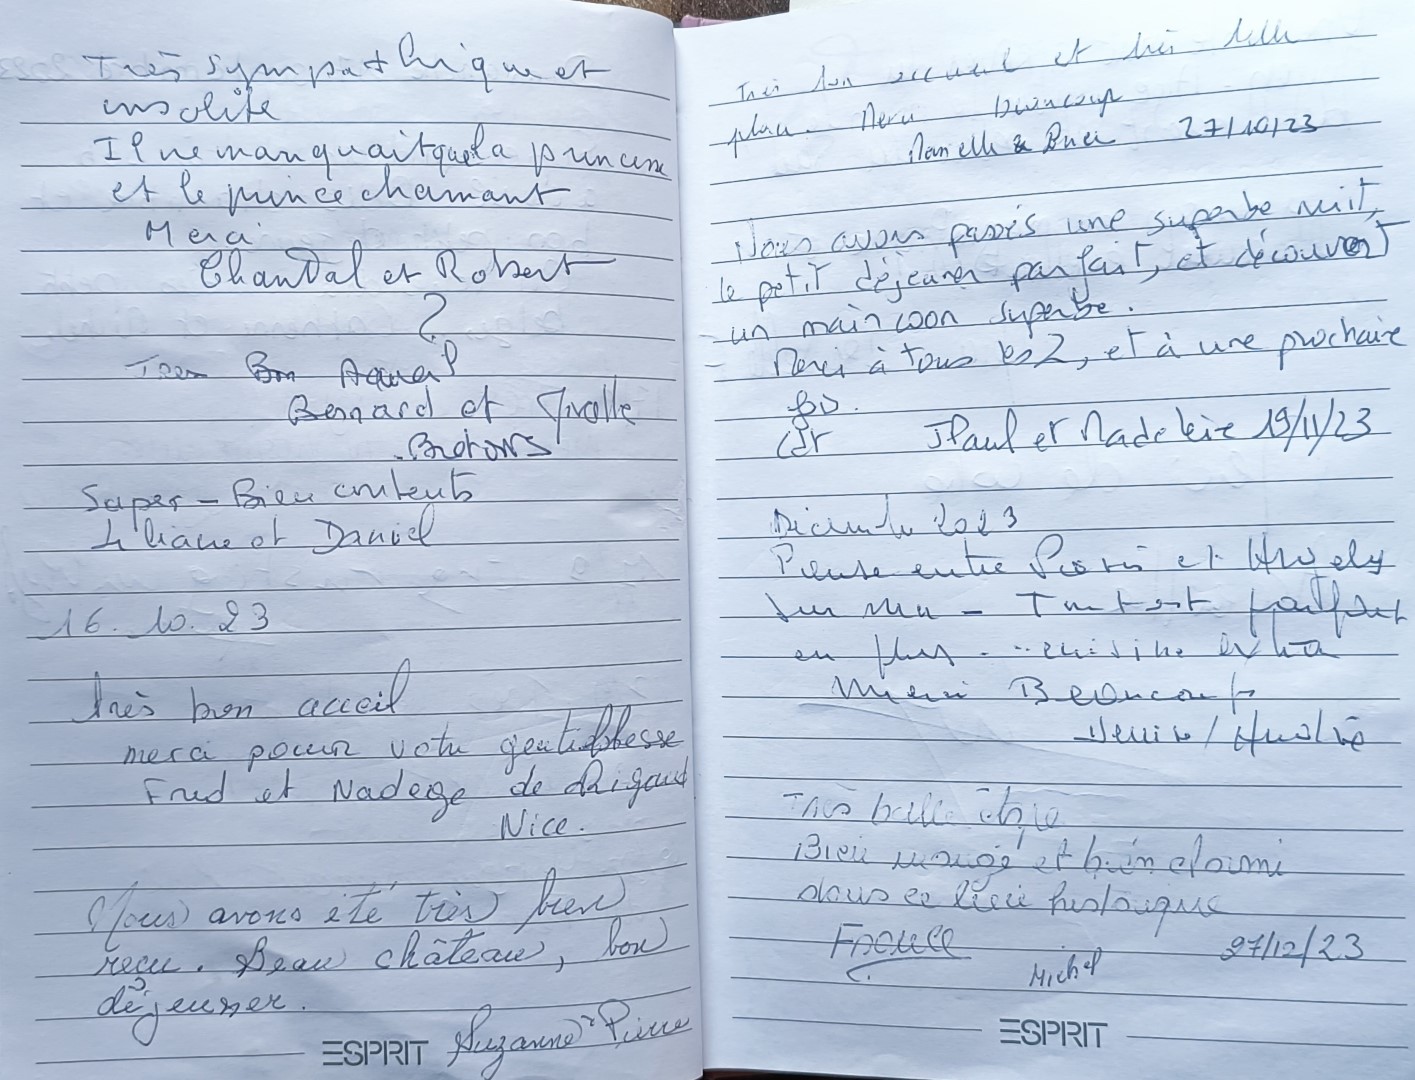 Très sympathique et
insolite
Il ne manquait que la princesse
et le prince charmant
Merci
Chantal et Robert
?
Tres Bon Aqueil
Bernard et Yvolle
Bretons
Super - Bien contents
Liliane et Daniel
16. 10. 23
très bon acceil
merci pour votre gentillesse
Fred et Nadege de Rigaud
Nice.
Nous avons été très bien
reçu. Beau château, bon
déjeuner.
Suzanne Pierre
ESPRIT
Très bon accueil et très belle
place. Merci beaucoup
& 27/10/23
Nous avons passés une superbe nuit,
le petit déjeuner parfait, et découvert
un main coon superbe.
Merci à tous les 2, et à une prochaine
fois.
JPaul et Madeleine 19/11/23
Décembre 2023
Pause entre Paris et
sur mer - Tout est parfait
en plus ... cuisine extra
Merci Beaucoup
Denise /
Très belle étape
Bien mangé et bien dormi
dans ce lieu historique
France 27/12/23
Michel
ESPRIT